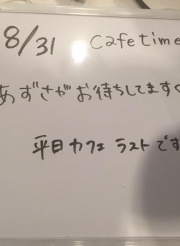 8/31 Cafe time
あずさがお待ちしてます
平日カフェ ラストです